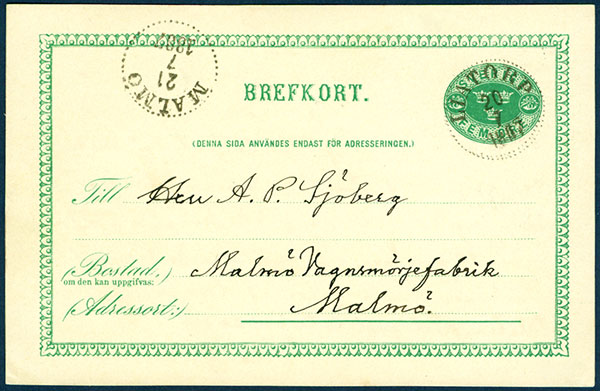 MALMÖ
21
7
BREFKORT.
20
7
FEM
(DENNA SIDA ANVÄNDES ENDAST FÖR ADRESSERINGEN.)
Till Herr A. P. Sjöberg
(Bostad.) Malmö Vagnsmörjefabrik
om den kan uppgifvas:
(Adressort:) Malmö.